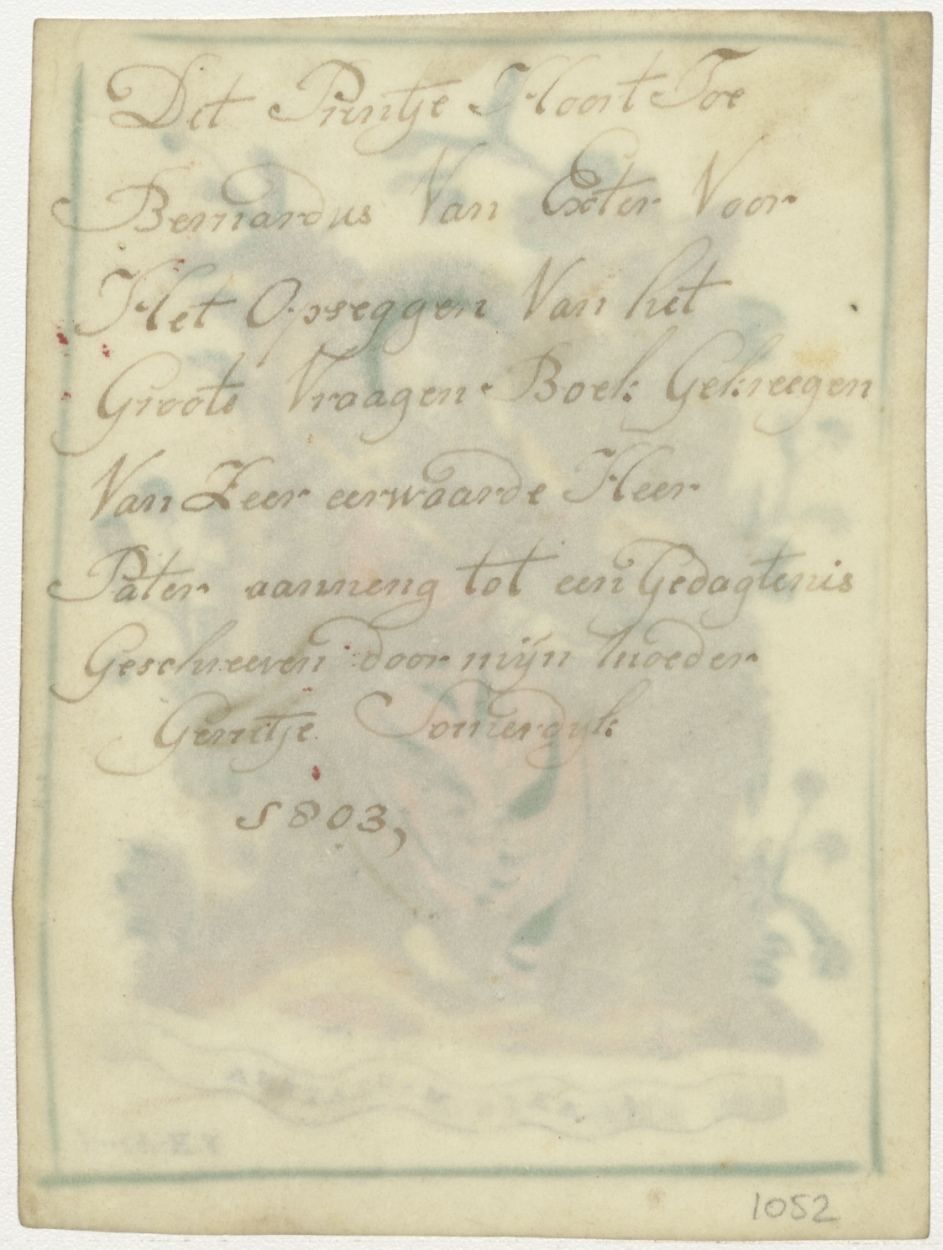 Dit Printje Hoort Toe
Bernardus Van Exter Voor
Het Opseggen Van het
Groote Vraagen Boek Gekreegen
Van Zeer eerwaarde Heer
Pater aanneng tot een Gedagtenis
Geschreeven door mijn moeder
Gerritje Somerdyk
1803,
1052